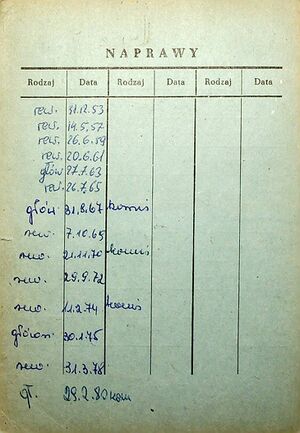 NAPRAWY
Rodzaj Data Rodzaj Data Rodzaj Data
rew. 31.12.53
rew. 14.5.57
rew. 26.6.59
rew. 20.6.61
głów 27.7.63
rew. 26.7.65
głów 31.8.67
rew. 7.10.69
rew. 21.11.70
rew. 29.9.72
rew. 11.2.74
główn. 30.1.75
rew. 31.3.78
gł. 29.2.80